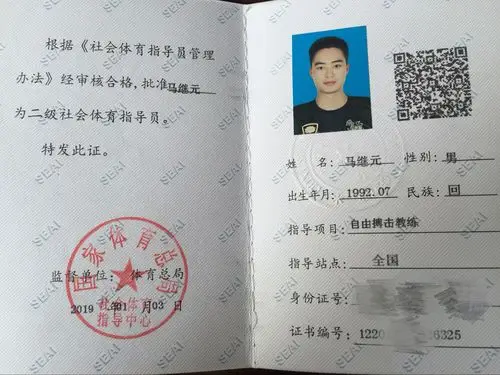 根据《社会体育指导员管理
办法》经审核合格,批准马继元
为二级社会体育指导员。
特发此证。
国家体育总局
监督单位: 体育总局
社会体育
指导中心
2019 年01 月03 日
姓 名: 马继元 性别: 男
出生年月: 1992.07 民族: 回
指导项目: 自由搏击教练
指导站点: 全国
身份证号:
证书编号: 1220 6325
SEAI